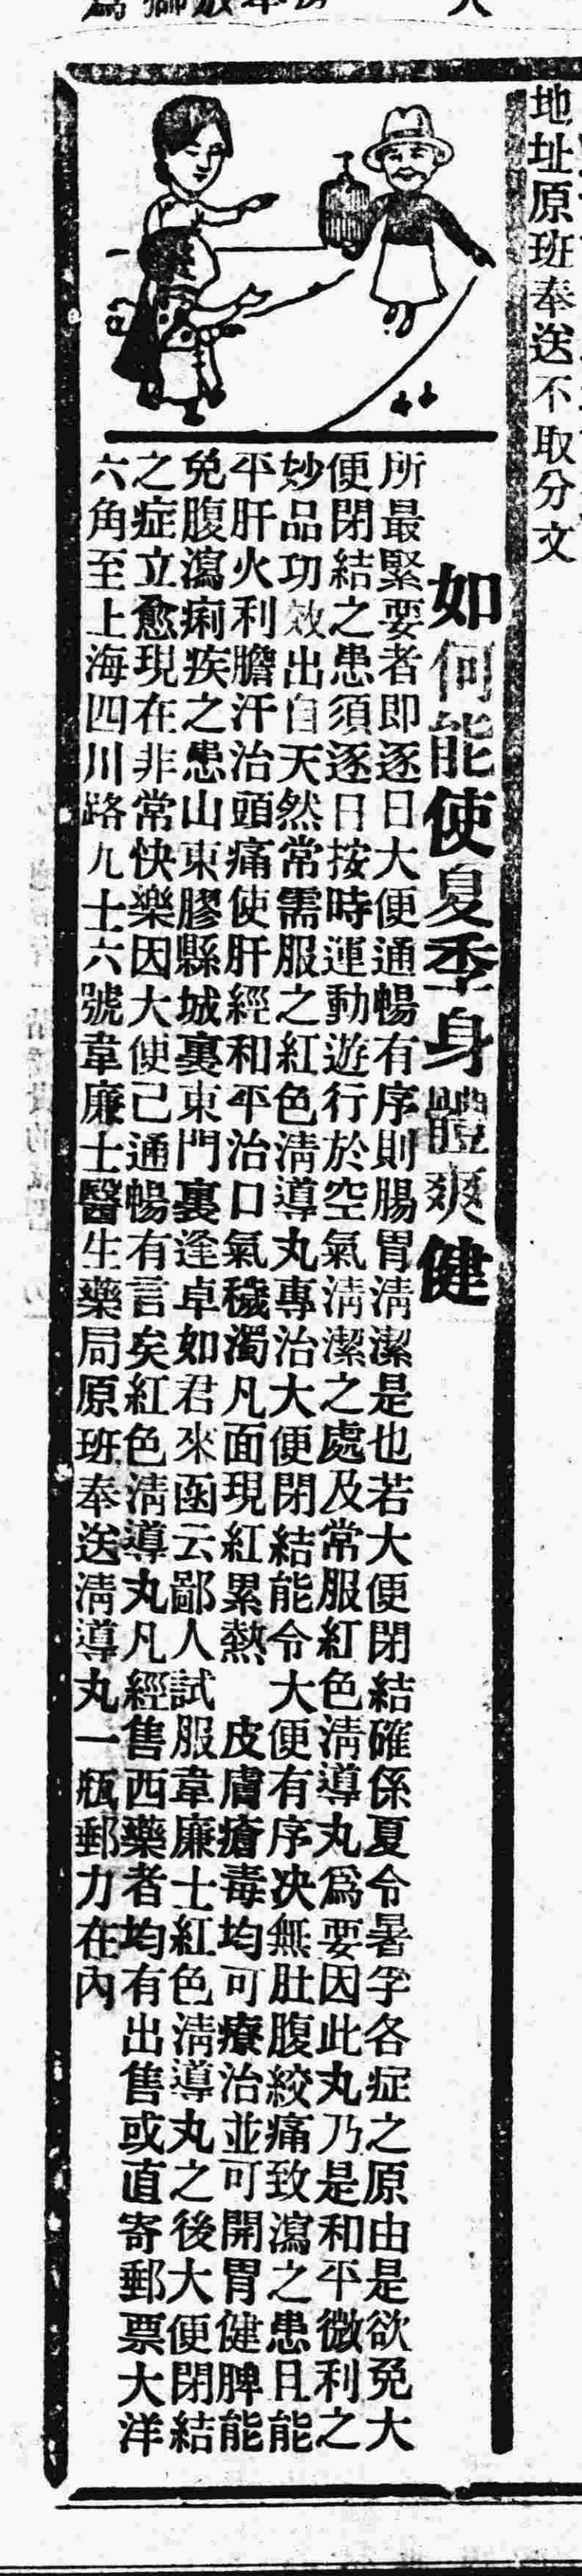 地址原班奉送不取分文
如何能使夏季身體爽健
所最緊要者即逐日大便通暢有序則腸胃淸潔是也若大便閉結確係夏令暑孛各症之原由是欲免大
便閉結之患須逐日按時運動遊行於空氣淸潔之處及常服紅色淸導丸爲要因此丸乃是和平微利之
妙品功效出自天然常需服之紅色淸導丸專治大便閉結能令大便有序决無肚腹絞痛致瀉之患且能
平肝火利膽汗治頭痛使肝經和平治口氣穢濁凡面現紅累熱　皮膚瘡毒均可療治並可開胃健脾能
免腹瀉痢疾之患山東膠縣城裏東門裏逢卓如君來函云鄙人試服韋廉士紅色淸導丸之後大便閉結
之症立愈現在非常快樂因大便己通暢有言矣紅色淸導丸凡經售西藥者均有出售或直寄郵票大洋
六角至上海四川路九十六號韋廉士醫生藥局原班奉送淸導丸一瓶郵力在內